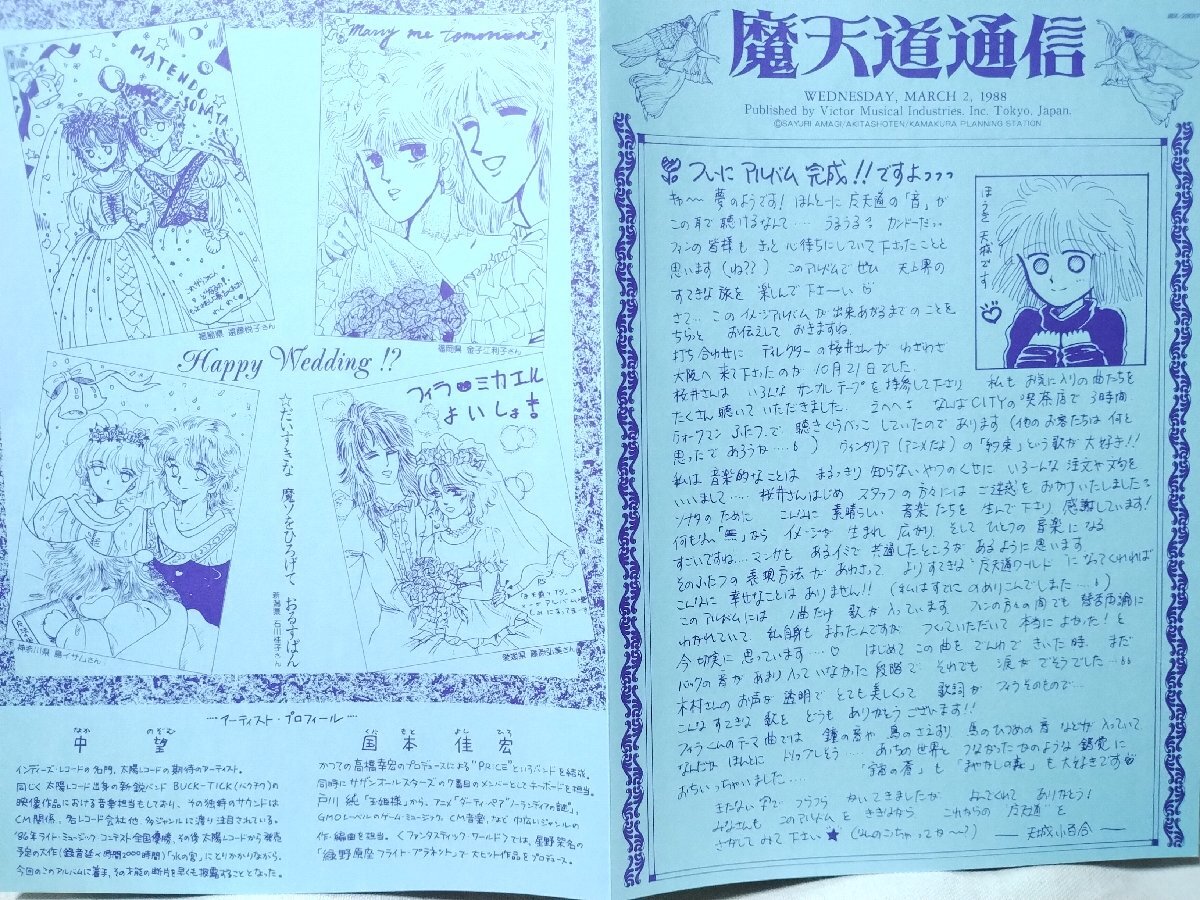 MATENDO SONATA
福島県 遠藤悦子さん
Marry me tomorrow,
福岡県 金子二利子さん
Happy Wedding !?
神奈川県 島イサムさん
☆だいすきな 魔ソをひろげて、おるすばん
新潟県 石川佳子さん
フィラ♥ミカエル
よいしょ!
愛媛県 藤原弘美さん
…アーティスト・プロフィール…
中 望
なか のぞむ
インディーズ・レコードの名門、太陽レコードの期待のアーティスト。
同じく太陽レコード出身の新鋭バンド BUCK-TICK(バクチク)の
映像作品における音楽担当もしており、その独特のサウンドは
CM関係、名レコード会社他、多ジャンルに渡り注目されている。
'86年ライト・ミュージック コンテスト全国優勝、その後太陽レコードから発売
予定の大作(録音延べ時間2000時間)「水の宮」にとりかかりながら、
今回のこのアルバムに着手、その才能の断片を早くも披露することとなった。
国本佳宏
くに もと よし ひろ
かつての高橋幸宏のプロデュースによる"PRICE"というバンドを結成。
同時にサザンオールスターズの7番目のメンバーとしてキーボードを担当。
戸川 純「玉姫様」から、アニメ「ダーティ・ペア"ノーランディアの謎"」、
GMOレーベルのゲーム・ミュージック、CM音楽、など巾広いジャンルの
作・編曲を担当。<ファンタスティック ワールド>では、星野架名の
「緑野原座フライト・プラネット」で大ヒット作品をプロデュース。
魔天道通信
WEDNESDAY, MARCH 2, 1988
Published by Victor Musical Industries. Inc. Tokyo. Japan.
©SAYURI AMAGI/AKITASHOTEN/KAMAKURA PLANNING STATION
ついに アルバム 完成!!ですよっっっ
きゃ〜 夢のようです! ほんとーに 广天道の「音」が
この耳で聴けるなんて…… うるうる カンドーだっ
ファンの皆様も きっと 心待ちにしていて下さったことと
思います(ね??) このアルバムで ぜひ 天上界の
すてきな旅を 楽しんで 下さーい
さて… このイメージアルバムが 出来あがるまでのことを
ちらっと お伝えして おきますね
打ち合わせに ディレクターの桜井さんが わざわざ
大阪へ来て下さったのが 10月21日でした。
桜井さんは いろんな サンプルテープを持参して下さり 私も お気に入りの曲たちを
たくさん聴いて いただきました。 なんばCITYの喫茶店で 3時間
ウォークマン ふたつで 聴きくらべっこ していたので あります (他のお客たちは 何と
思ったで あろうか……) ウィンダリア(アニメだよ)の「約束」という歌が 大好き!!
私は音楽的なことは まるっきり 知らない やつのくせに いろーんな 注文や文句を
いいまして…… 桜井さんはじめ スタッフの方々には ご迷惑を おかけいたしました
ソナタのために こんなに 素晴らしい 音楽たちを 生んで下さり 感謝しています!
何もない「無」から イメージが 生まれ 広がり、そして ひとつの音楽になる
すごいですね…マンガも ある意味で 共通したところが あるように 思います
そのふたつの表現方法が あわさって よりすてきな "广天道ワールド" に なってくれれば
こんなに 幸せなことは ありません!! (私はすでに のめりこんでしまった……)
このアルバムには 1曲だけ 歌が入っています ファンの方々の間でも 賛否両論に
わかれていて 私自身も まよったんですが つくっていただいて 本当によかった! と
今切実に 思っています……♡ はじめて この曲を でんわで きいた時、まだ
バックの音が あまり入っていなかった段階で それでも 涙が でそうでした…
木村さんのお声が 透明で とても美しくって 歌詞が フィラそのもので…
こんなすてきな 歌を どうも ありがとう ございます!!
フィラくんのテーマ曲では 鐘の音や 鳥のさえずり 馬のひづめの音 などが入っていて
なんだか ほんとに トリップしそう… あちらの世界と つながったかのような錯覚に
おちいっちゃいました 「宇宙の蒼」も「あやかしの森」も 大好きです
きたない字で フラフラ かいてきましたが よんでくれて ありがとう!
みなさんも このアルバムを ききながら これからの "广天道" を
さがしてみて下さい★
—天城小百合—
ほうき 天城です